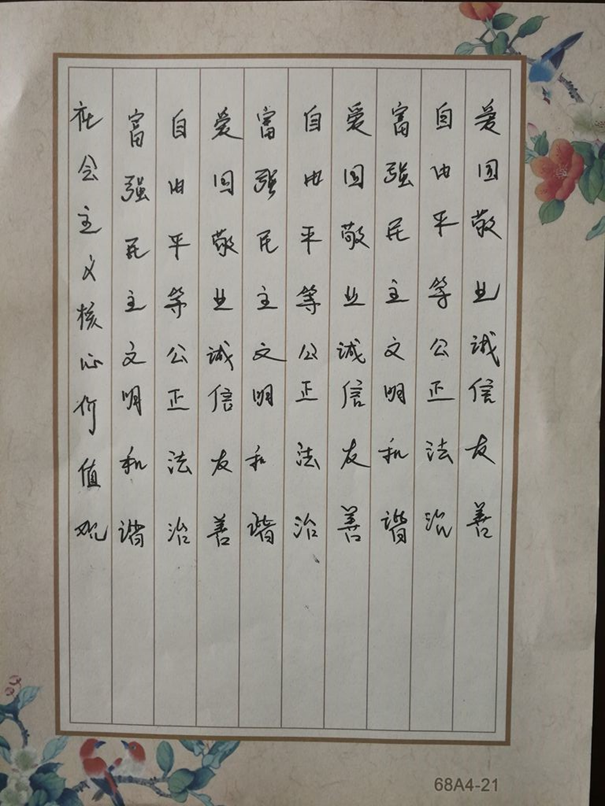 社会主义核心价值观
富强民主文明和谐
自由平等公正法治
爱国敬业诚信友善
富强民主文明和谐
自由平等公正法治
爱国敬业诚信友善
富强民主文明和谐
自由平等公正法治
爱国敬业诚信友善
68A4-21